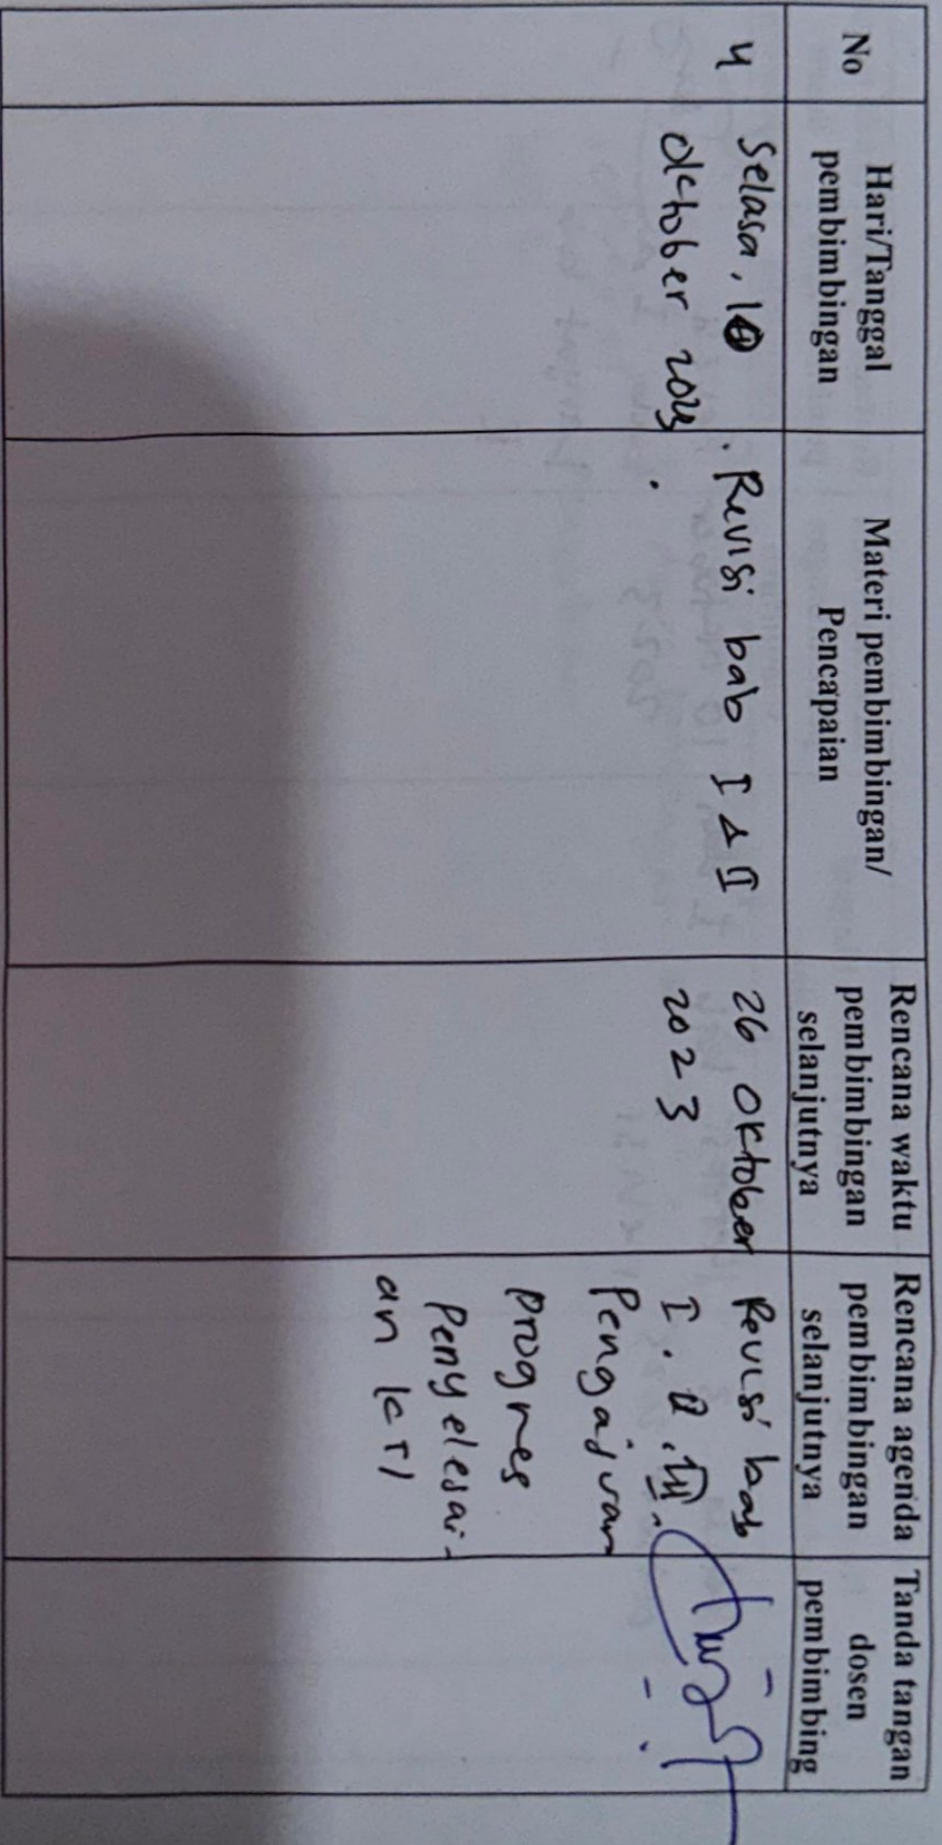 No
Hari/Tanggal
pembimbingan
Materi pembimbingan/
Pencapaian
Rencana waktu
pembimbingan
selanjutnya
Rencana agenda
pembimbingan
selanjutnya
Tanda tangan
dosen
pembimbing
4
Selasa, 10
oktober 2023
. Revisi bab I & II
.
26 Oktober
2023
Revisi bab
I. II. III.
Pengajuan
progres
Penyelesai-
an KTI